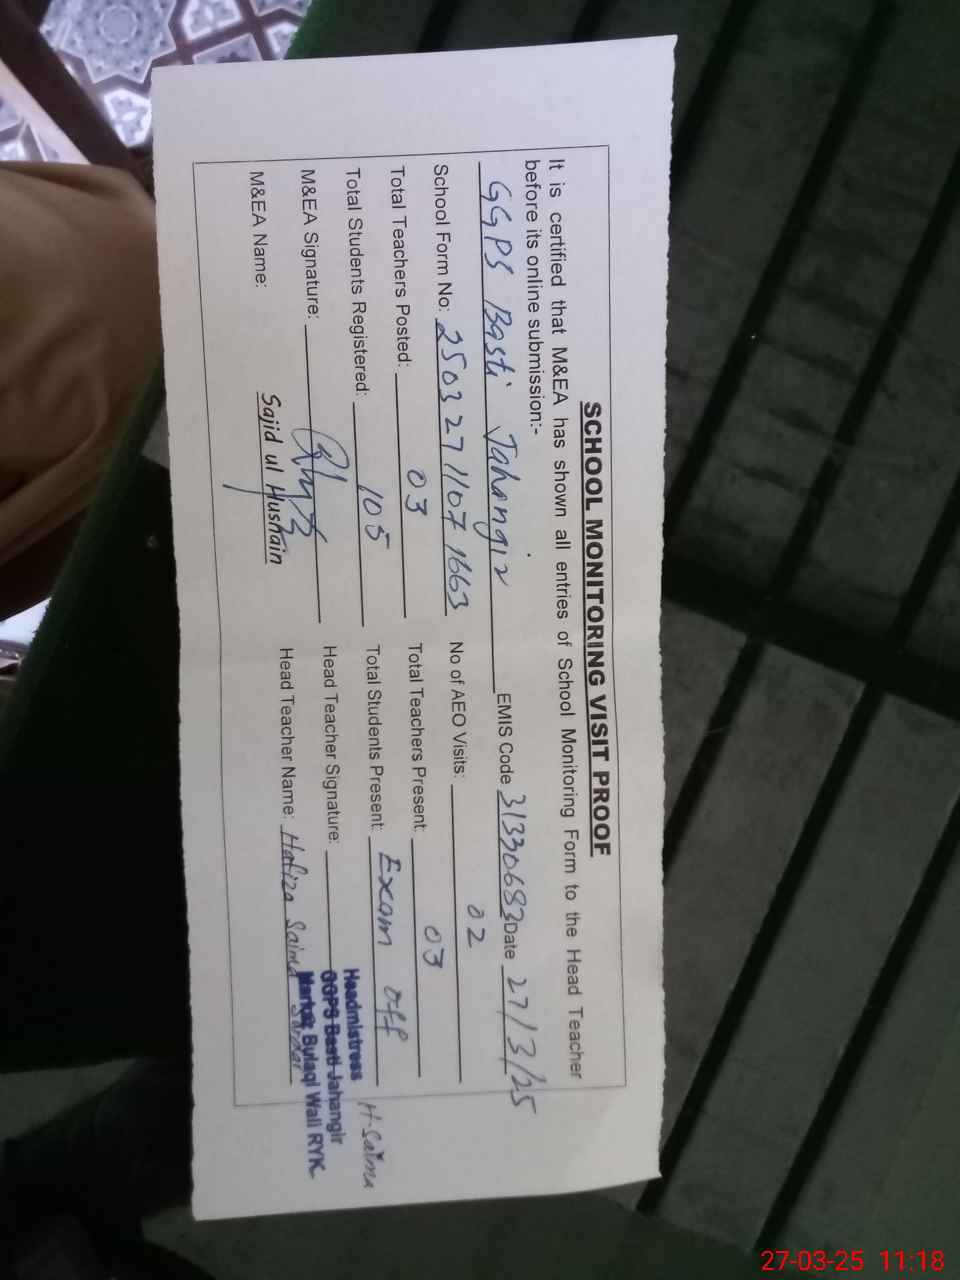 SCHOOL MONITORING VISIT PROOF
It is certified that M&EA has shown all entries of School Monitoring Form to the Head Teacher
before its online submission:-
GGPS Basti Jahangir EMIS Code 31330683 Date 27/3/25
School Form No: 2503271107 1663 No of AEO Visits: 02
Total Teachers Posted: 03 Total Teachers Present: 03
Total Students Registered: 105 Total Students Present: Exam Off
M&EA Signature: Head Teacher Signature: H-Saima
M&EA Name: Sajid ul Hushain Head Teacher Name: Hafiza Saima Sardar
Headmistress
GGPS Basti Jahangir
Markaz Bulaqi Wali RYK
27-03-25 11:18